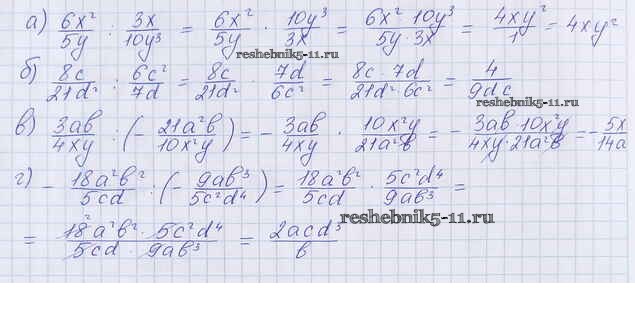 а) 6x²/5y : 3x/10y³ = 6x²/5y · 10y³/3x = 6x² · 10y³/5y · 3x = 4xy²/1 = 4xy²
reshebnik5-11.ru
б) 8c/21d² : 6c²/7d = 8c/21d² · 7d/6c² = 8c · 7d/21d² · 6c² = 4/9dc
reshebnik5-11.ru
reshebnik5-11.ru
в) 3ab/4xy : (- 21a²b/10x²y) = - 3ab/4xy · 10x²y/21a²b = - 3ab · 10x²y/4xy · 21a²b = - 5x/14a
г) - 18a²b²/5cd : (- 9ab³/5c²d⁴) = 18a²b²/5cd · 5c²d⁴/9ab³ =
reshebnik5-11.ru
= 18²a²b² · 5c²d⁴/5cd · 9ab³ = 2acd³/b